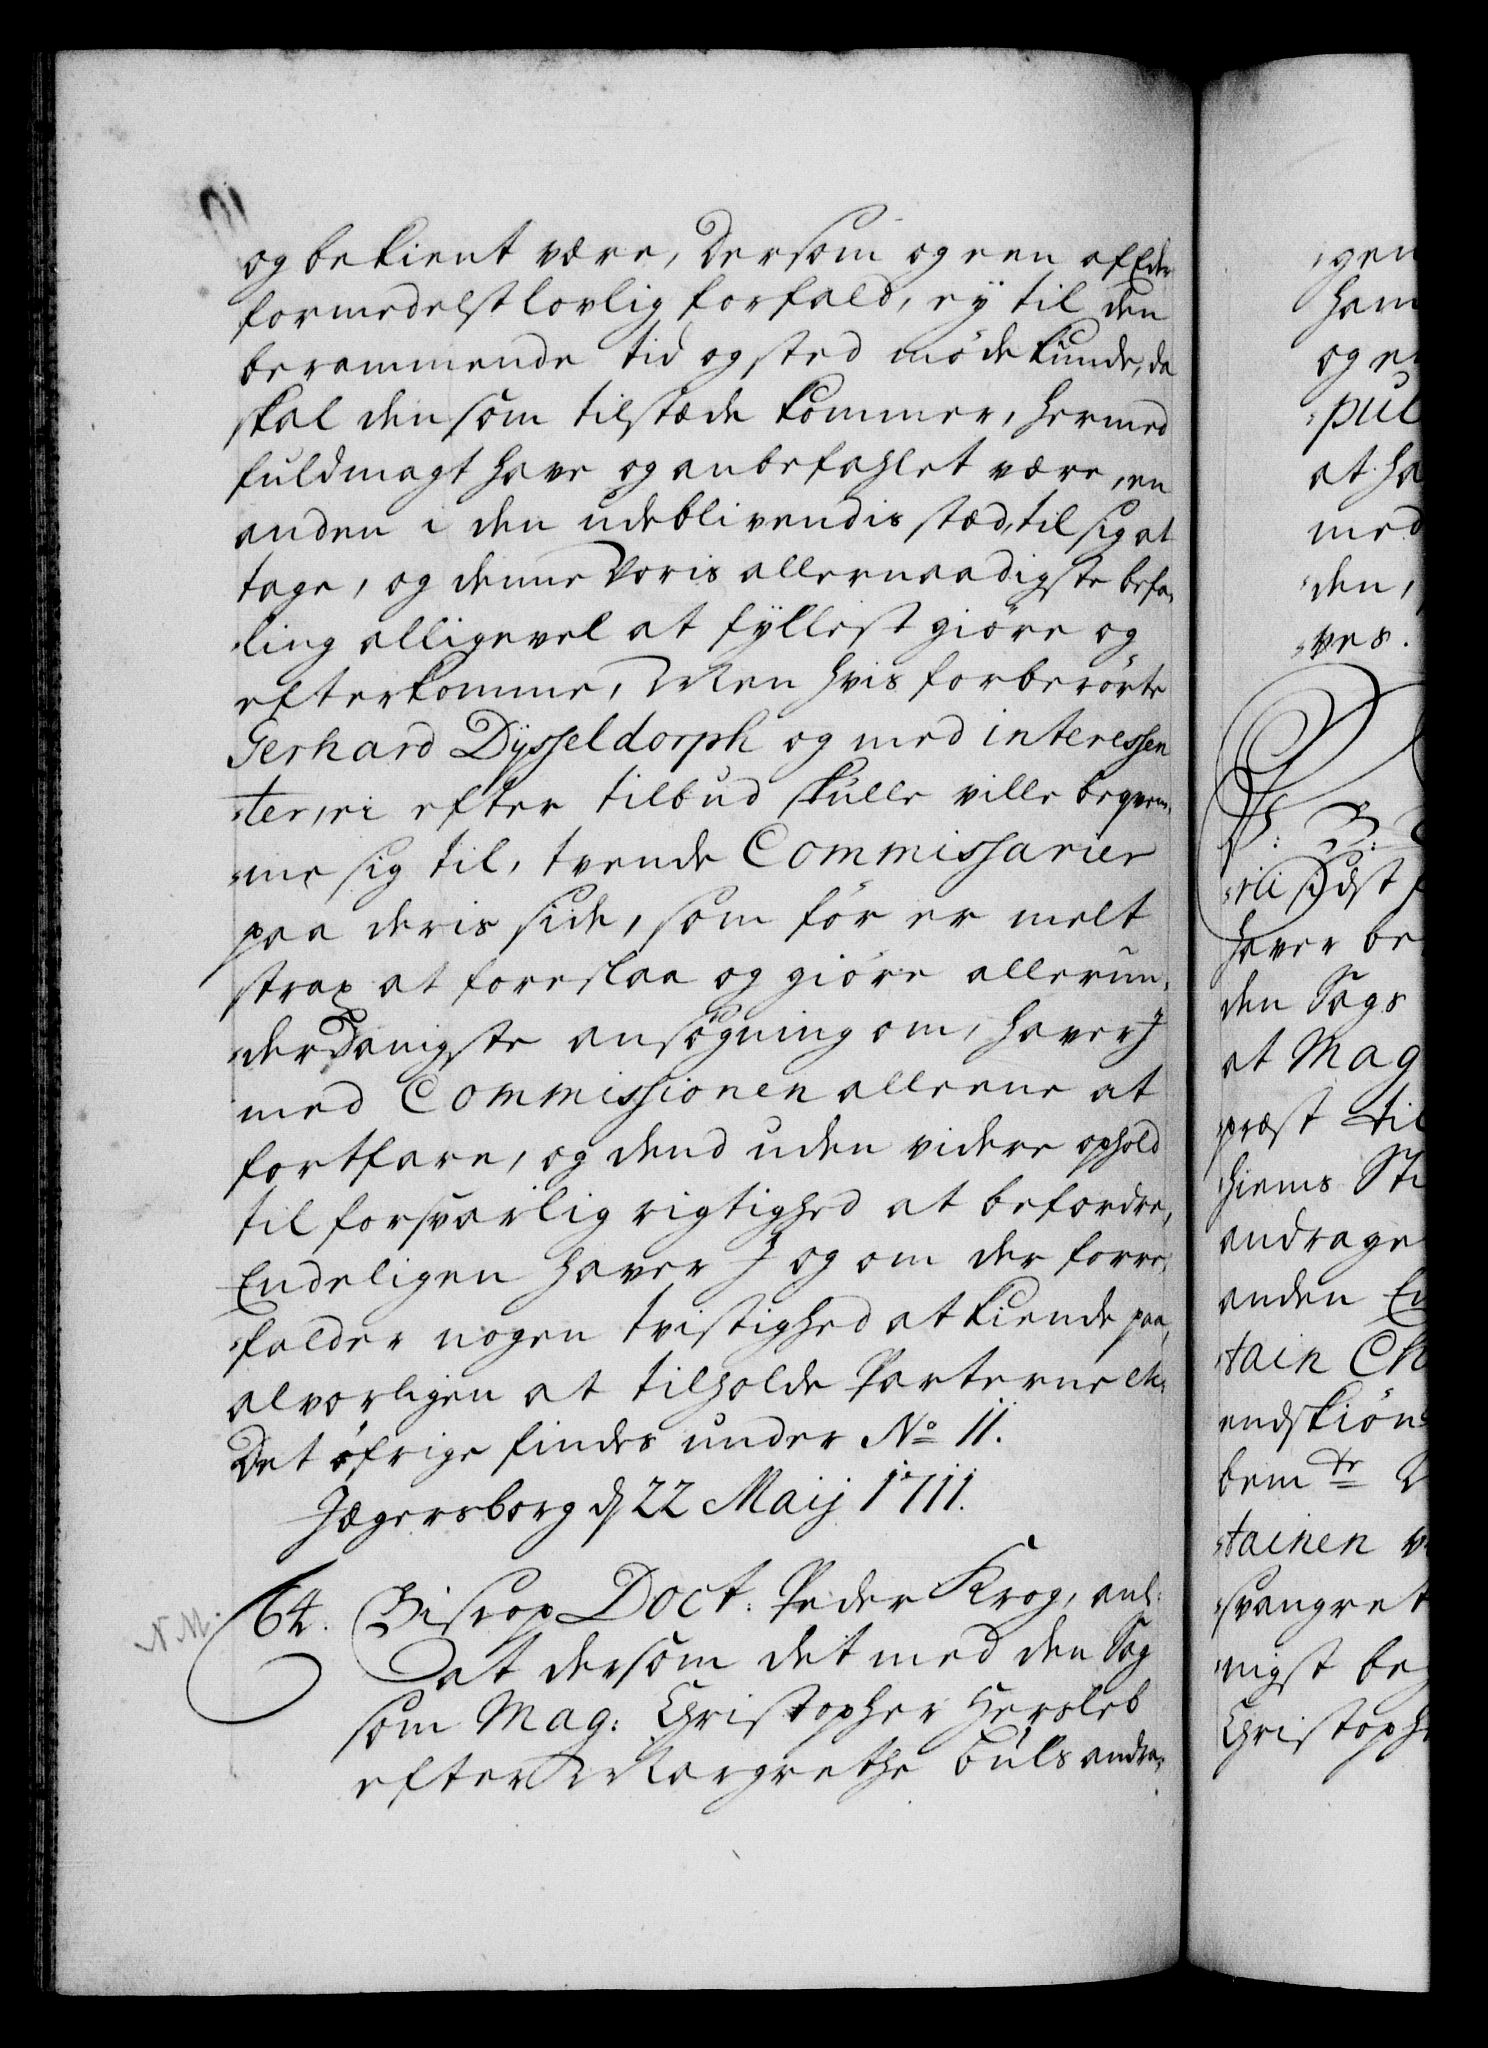 og bekient være, Dersom og een af Eder
formedelst lovlig forfald, ey til den
berammende tid og sted möde kunde, da
skal den som tilstæde kommer, hermed
fuldmagt have og anbefahlet være, en
anden i den udeblivendis stæd, til sig at
tage, og denne Voris allernaadigste befa„
„ling alligevel at fyllest giöre og
efterkomme, Men hvis forberörte
Gerhard Dysseldorph og med interessen
„ter, ei efter tilbud skulle ville beqvem„
„me sig til, tvende Commissarier
paa deris side, som för er melt
strax at foreslaa og giöre allerun„
„derdanigste ansögning om, haver J
med Commissionen alleene at
fortfare, og dend uden videre ophold
til forsvarlig rigtighed at befordre,
Endeligen haver J og om der forre„
„falder nogen tvistighed at kiende paa,
alvorligen at tilholde Parterne etc.
Det öfrige findes under No 11.
Jægersborg d 22 Maij 1711.
N M.
64. Biscop Doct. Peder Krog, anl:
at dersom det med den Sag
som Mag: Christopher Hersleb
efter Margrethe Buls andra„
„gen
ham
og
„pul
at ha
med
„den,
„ves.
haver be
den Sags
at Mag
præst til
„hiems Sti
andrage
anden
„tain Ch
endskiön
bem.te
„tainen
„svangret
„nigst beg
Christoph